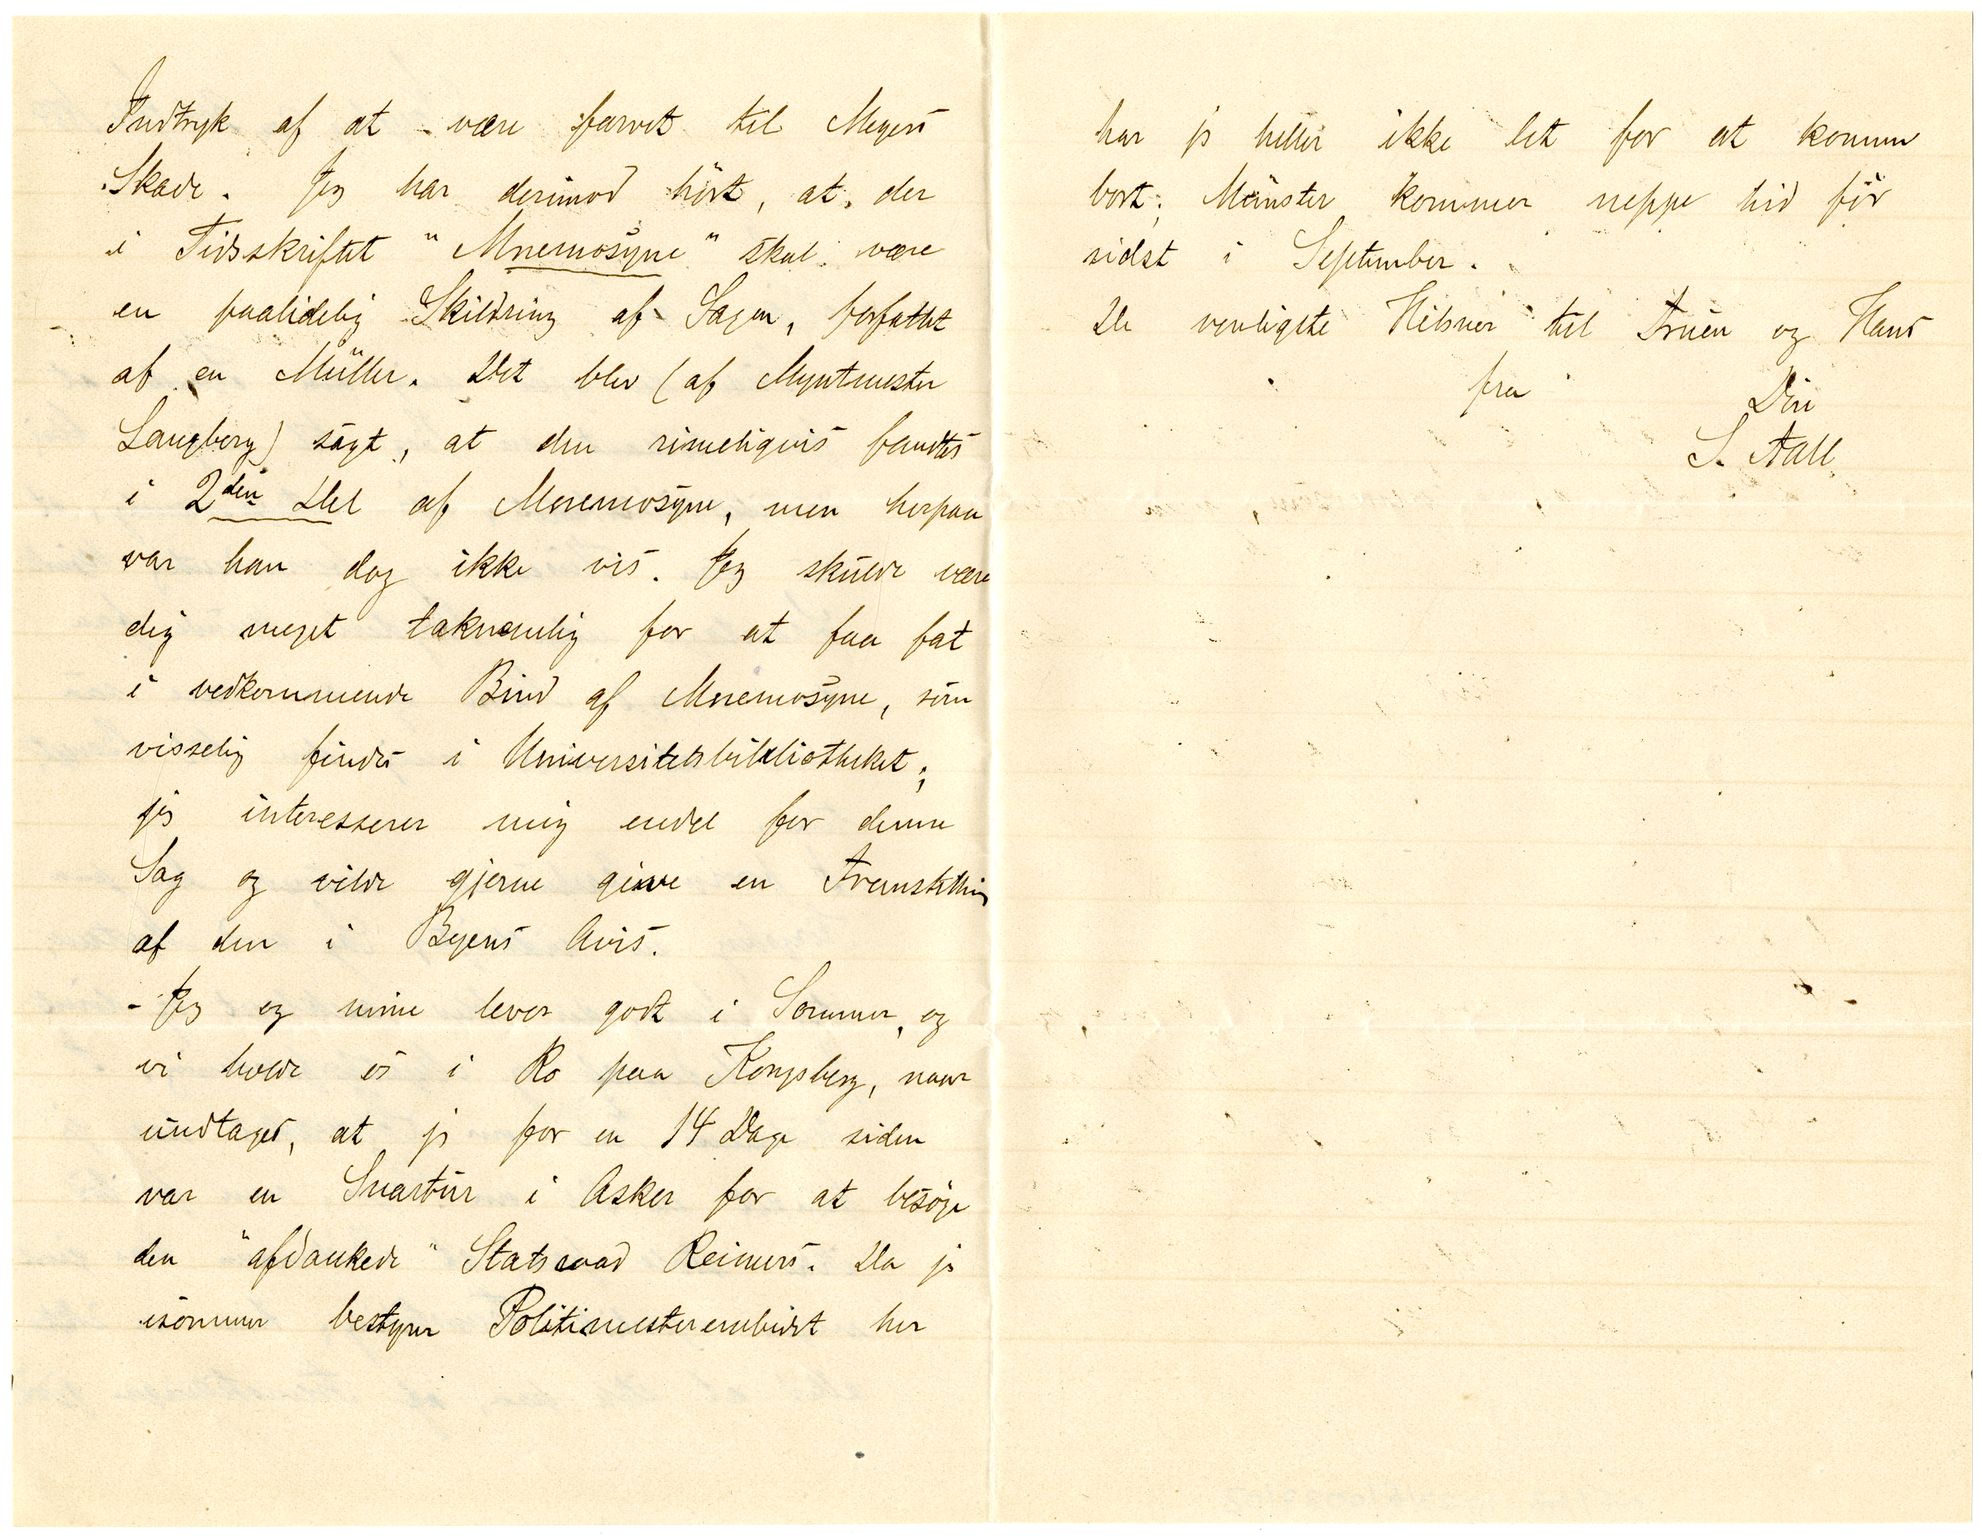 Indtryk af at være farvet til Meyers
Skade. Jeg har derimod hört, at der
i Tidsskriftet "Mnemosyne" skal være
en paalidelig Skildring af Sagen, forfattet
af en Müller. Det blev (af Myntmester
Langberg) sagt, at den rimeligvis fandtes
i 2den Del af Mnemosyne, men herpaa
var han dog ikke vis. Jeg skulde være
dig meget taknemlig for at faa fat
i vedkommende Bind af Mnemosyne, som
visselig findes i Universitetsbibliotheket;
jeg interesserer mig endel for denne
Sag og vilde gjerne give en Fremstilling
af den i Byens Avis.
- Jeg og mine lever godt i Sommer, og
vi holde os i Ro paa Kongsberg, naar
undtages, at jeg for en 14 Dage siden
var en Snartur i Asker for at besöge
den "afdankede" Statsraad Reimers. Da jeg
isommer bestyrer Politimesterembedet her
har jeg heller ikke let for at komme
bort; Münster kommer neppe hid för
sidst i September.
De venligste Hilsner til Fruen og Hans
fra Din
S. Aall